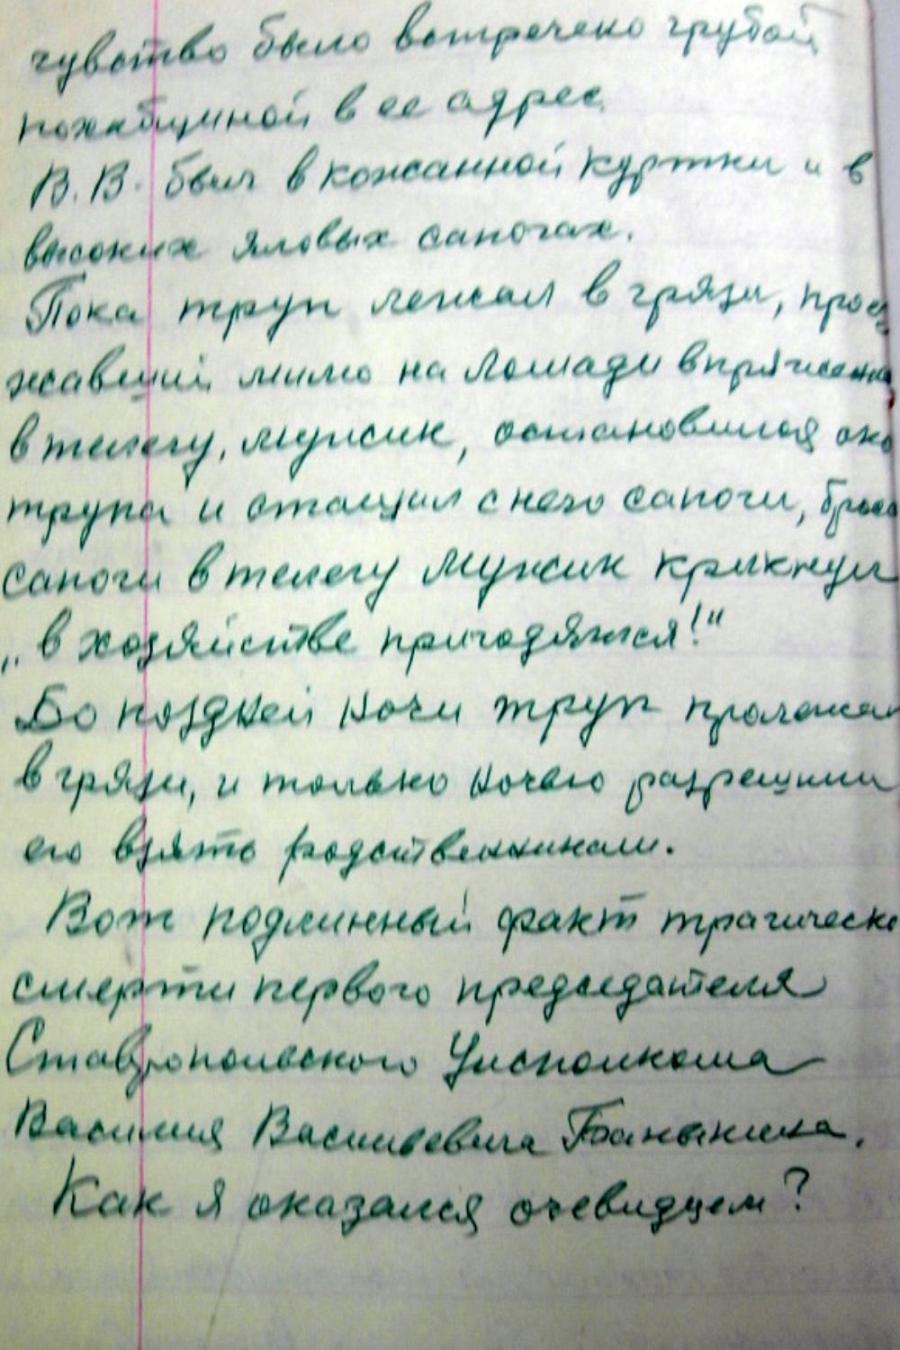 чувство было встречено грубой
похабщиной в ее адрес.
В.В. был в кожанной куртки и в
высоких яловых сапогах.
Пока труп лежал в грязи, проез
жавший мимо на лошади впряжен
в телегу, мужик, остановился око
трупа и стащил с него сапоги, брос
сапоги в телегу мужик крикнул
„в хозяйстве пригодятся!"
До поздней ночи труп пролежал
в грязи, и только ночью разрешили
его взять родственникам.
Вот подлинный факт трагическо
смерти первого председателя
Ставропольского Уисполкома
Василия Васильевича Баныкина.
Как я оказался очевидцем?